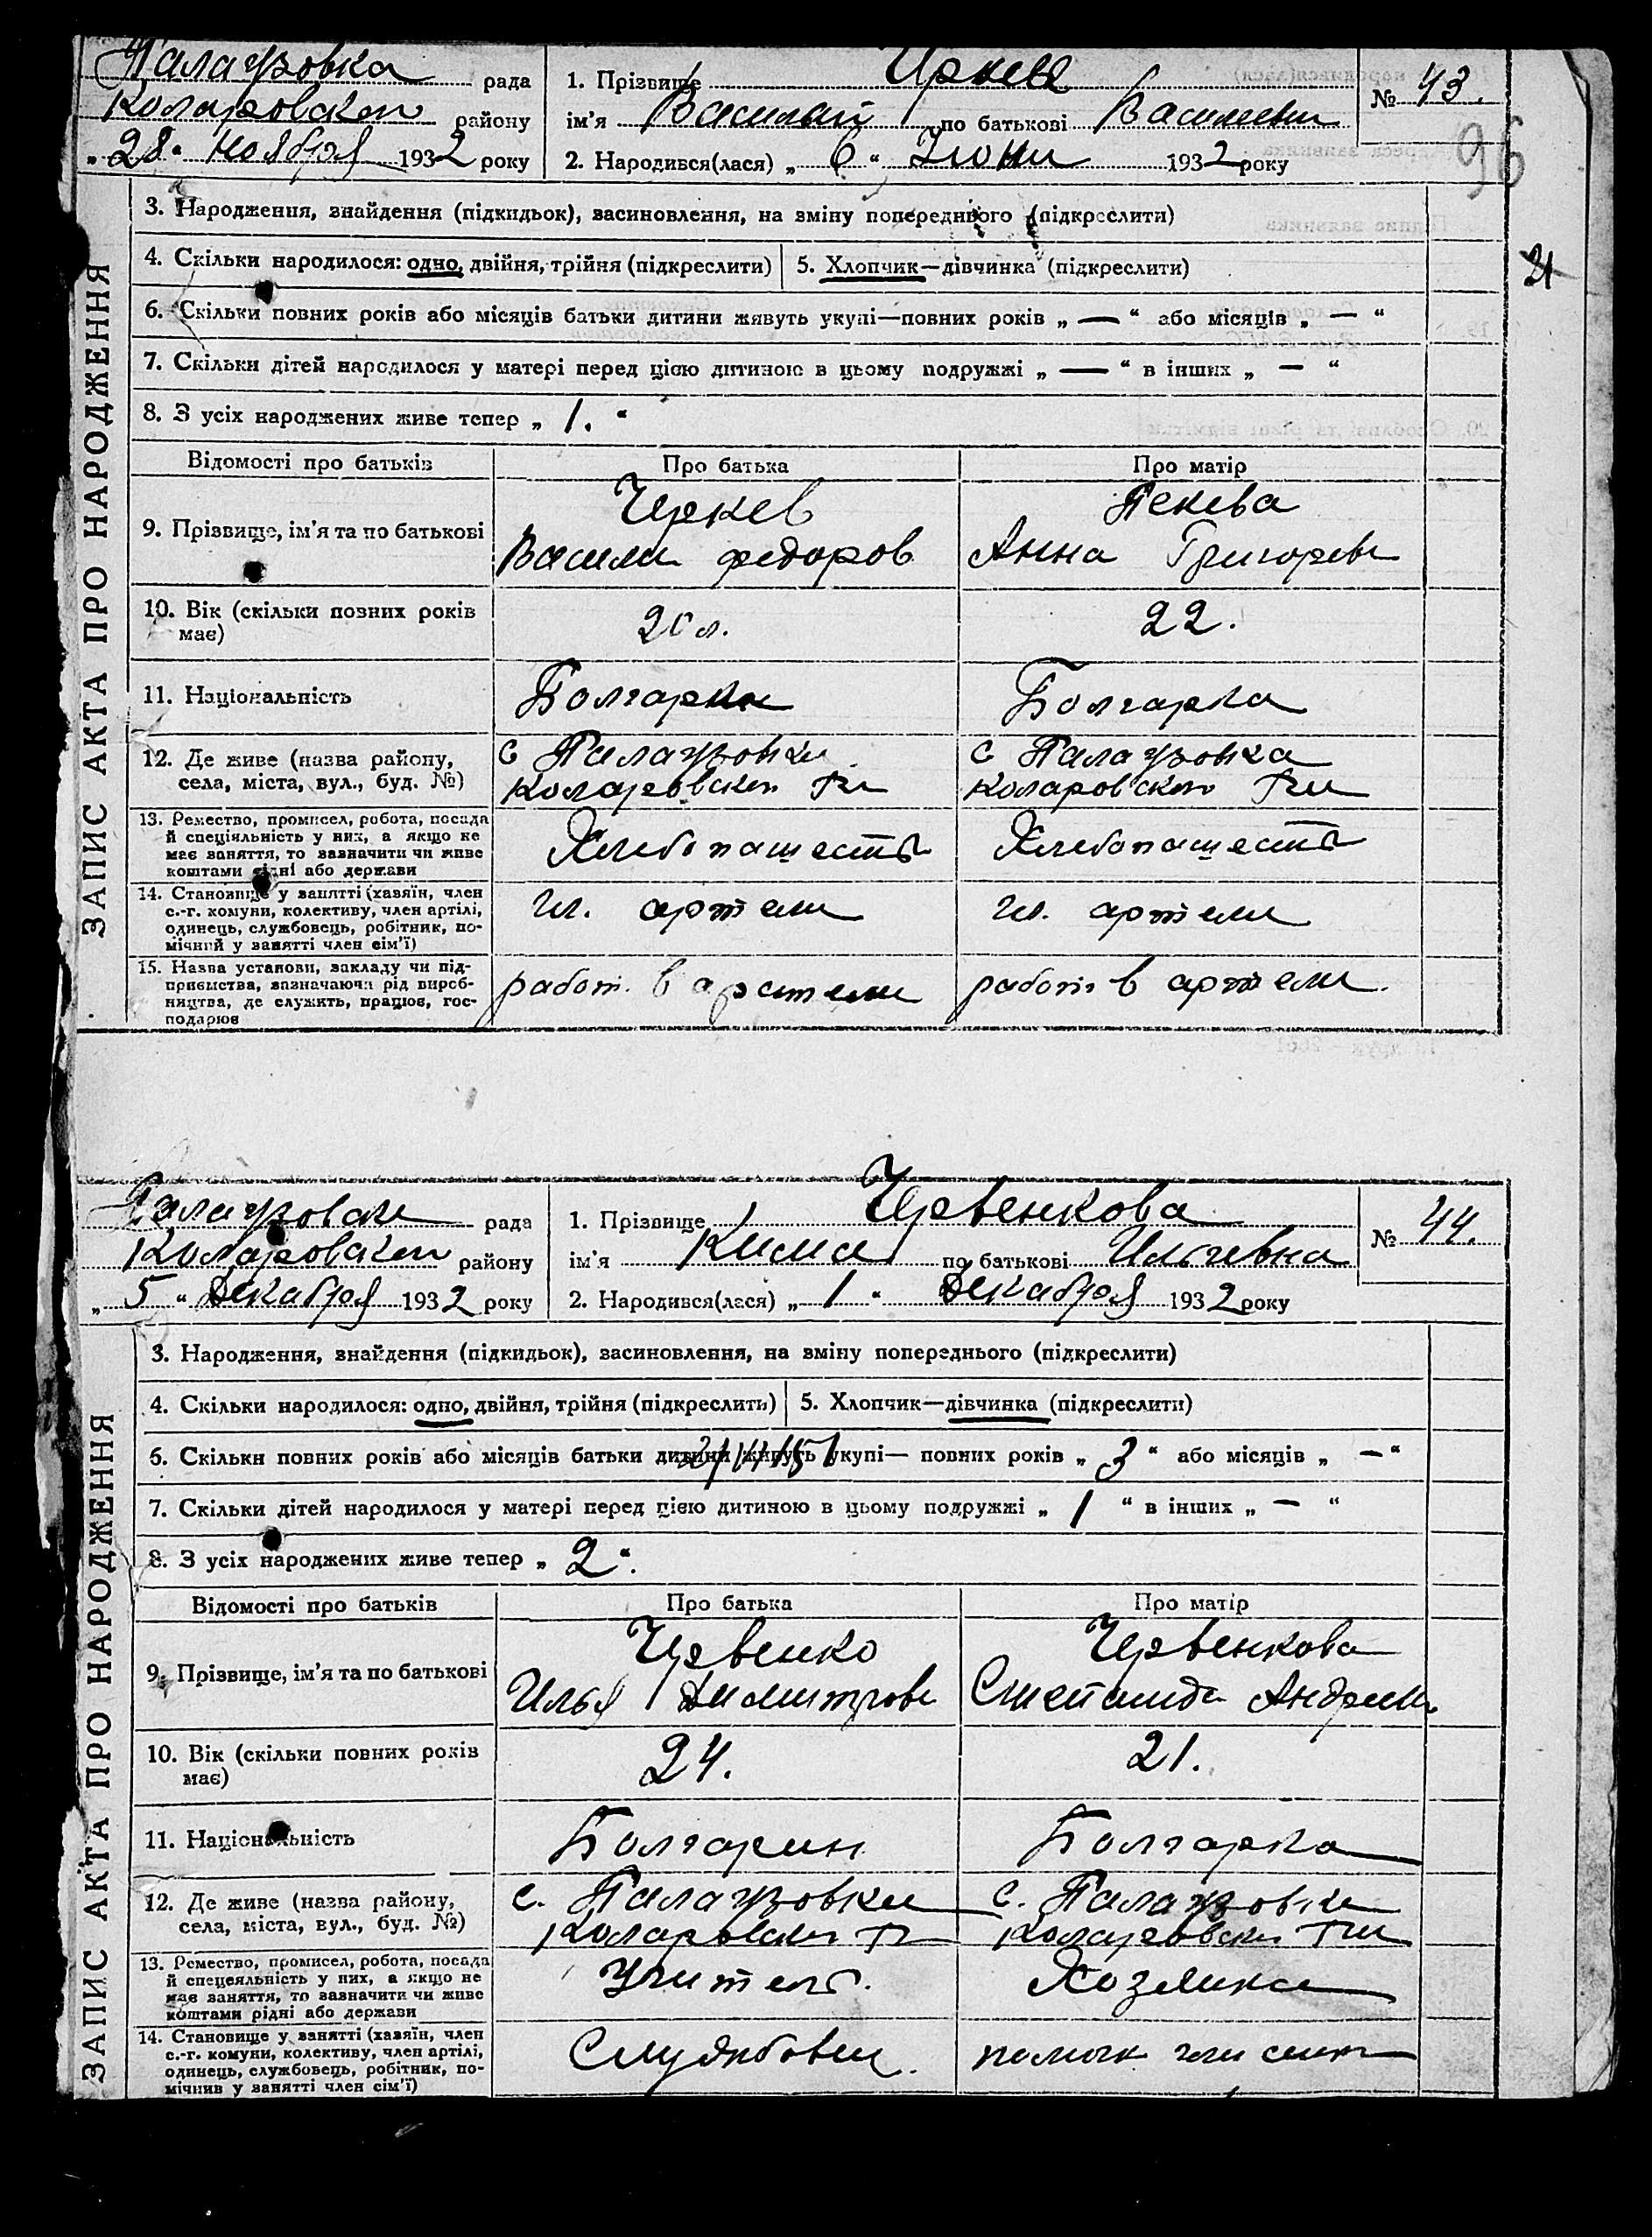 Палаузовка рада
Коларовском району
„28“ Ноября 1932 року
1. Прізвище Черкев
ім'я Василий по батькові Васильевич
2. Народився(лася) „6“ Июни 1932 року
№ 43.
96
ЗАПИС АКТА ПРО НАРОДЖЕННЯ
3. Народження, знайдення (підкидьок), засиновлення, на зміну попереднього (підкреслити)
4. Скільки народилося: одно, двійня, трійня (підкреслити)
5. Хлопчик—дівчинка (підкреслити)
21
6. Скільки повних років або місяців батьки дитини живуть укупі—повних років „ — “ або місяців „ — “
7. Скільки дітей народилося у матері перед цією дитиною в цьому подружжі „ — “ в інших „ — “
8. З усіх народжених живе тепер „ 1. “
Відомості про батьків
Про батька
Про матір
9. Прізвище, ім'я та по батькові
Черкев
Васили федоров
Пекева
Анна Григорев
10. Вік (скільки повних років
має)
20 л.
22.
11. Національність
Болгарин
Болгарка
12. Де живе (назва району,
села, міста, вул., буд. №)
с Палаузовки
Коларовском
с Палаузовка
Коларовском
13. Ремество, промисел, робота, посада
й спеціяльність у них, а якщо не
має заняття, то зазначити чи живе
коштами рідні або держави
Хлебопашеств
Хлебопашеств
14. Становище у занятті (хазяїн, член
с.-г. комуни, колективу, член артілі,
одинець, службовець, робітник, по-
мічний у занятті член сім'ї)
Чл. артели
чл. артели
15. Назва установи, закладу чи під-
приємства, зазначаючи рід вироб-
ництва, де служить, працює, гос-
подарює
работ. в артели
работ в артели.
Палаузовски рада
Коларовском району
„5“ Декабря 1932 року
1. Прізвище Червенкова
ім'я Кима по батькові Ильевна
2. Народився(лася) „1“ Декабря 1932 року
№ 44.
ЗАПИС АКТА ПРО НАРОДЖЕННЯ
3. Народження, знайдення (підкидьок), засиновлення, на зміну попереднього (підкреслити)
4. Скільки народилося: одно, двійня, трійня (підкреслити)
5. Хлопчик—дівчинка (підкреслити)
6. Скільки повних років або місяців батьки дитини живуть укупі— повних років „ 3 “ або місяців „ — “
7. Скільки дітей народилося у матері перед цією дитиною в цьому подружжі „ 1 “ в інших „ — “
8. З усіх народжених живе тепер „ 2 “.
Відомості про батьків
Про батька
Про матір
9. Прізвище, ім'я та по батькові
Червенко
Илья Димитров
Червенкова
Андреев
10. Вік (скільки повних років
має)
24.
21.
11. Національність
Болгарин
Болгарка
12. Де живе (назва району,
села, міста, вул., буд. №)
с. Палаузовки
Коларовски
с. Палаузовки
Коларовски
13. Ремество, промисел, робота, посада
й спецеяльність у них, а якщо не
має заняття, то зазначити чи живе
коштами рідні або держави
Учитель.
Хозяика
14. Становище у занятті (хазяїн, член
с.-г. комуни, колективу, член артілі,
одинець, службовець, робітник, по-
мічнив у занятті член сім'ї)
Службовец